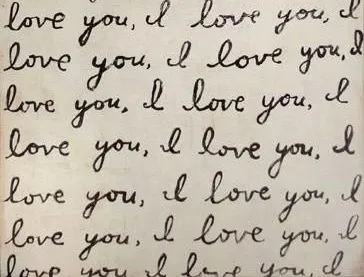 love you, I love you, I
love you, I love you, I
love you, I love you, I
love you, I love you, I
love you, I love you, I
love you, I love you, I
love you, I love you, I